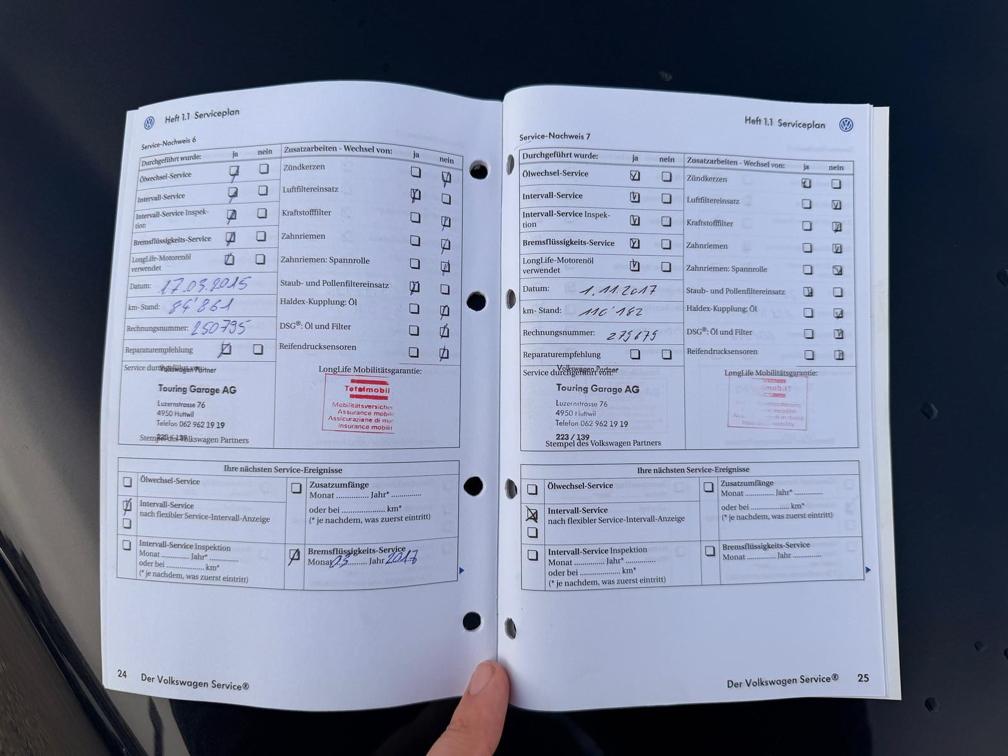 Heft 1.1 Serviceplan
Service-Nachweis 6
Durchgeführt wurde: ja nein
Ölwechsel-Service
Intervall-Service
Intervall-Service Inspek-
tion
Bremsflüssigkeits-Service
LongLife-Motorenöl
verwendet
Datum: 17.03.2015
km-Stand: 84'861
Rechnungsnummer: 250795
Reparaturempfehlung
Zusatzarbeiten - Wechsel von: ja nein
Zündkerzen
Luftfiltereinsatz
Kraftstofffilter
Zahnriemen
Zahnriemen: Spannrolle
Staub- und Pollenfiltereinsatz
Haldex-Kupplung: Öl
DSG®: Öl und Filter
Reifendrucksensoren
Service durchgeführt von:
Volkswagen Partner
Touring Garage AG
Luzernstrasse 76
4950 Huttwil
Telefon 062 962 19 19
Stempel des Volkswagen Partners
LongLife Mobilitätsgarantie:
Totalmobil
Mobilitätsversiche
Assurance mobil
Assicurazione di mo
Insurance mobili
Ihre nächsten Service-Ereignisse
Ölwechsel-Service
Intervall-Service
nach flexibler Service-Intervall-Anzeige
Intervall-Service Inspektion
Monat ............ Jahr* ............
oder bei ...................... km*
(* je nachdem, was zuerst eintritt)
Zusatzumfänge
Monat ............ Jahr* ............
oder bei ...................... km*
(* je nachdem, was zuerst eintritt)
Bremsflüssigkeits-Service
Monat 03 Jahr 2017
24 Der Volkswagen Service®
Heft 1.1 Serviceplan
Service-Nachweis 7
Durchgeführt wurde: ja nein
Ölwechsel-Service
Intervall-Service
Intervall-Service Inspek-
tion
Bremsflüssigkeits-Service
LongLife-Motorenöl
verwendet
Datum: 1.11.2017
km-Stand: 110'182
Rechnungsnummer: 275675
Reparaturempfehlung
Zusatzarbeiten - Wechsel von: ja nein
Zündkerzen
Luftfiltereinsatz
Kraftstofffilter
Zahnriemen
Zahnriemen: Spannrolle
Staub- und Pollenfiltereinsatz
Haldex-Kupplung: Öl
DSG®: Öl und Filter
Reifendrucksensoren
Service durchgeführt von:
Volkswagen Partner
Touring Garage AG
Luzernstrasse 76
4950 Huttwil
Telefon 062 962 19 19
223 / 139
Stempel des Volkswagen Partners
LongLife Mobilitätsgarantie:
Ihre nächsten Service-Ereignisse
Ölwechsel-Service
Intervall-Service
nach flexibler Service-Intervall-Anzeige
Intervall-Service Inspektion
Monat ............ Jahr* ............
oder bei ...................... km*
(* je nachdem, was zuerst eintritt)
Zusatzumfänge
Monat ............ Jahr* ............
oder bei ...................... km*
(* je nachdem, was zuerst eintritt)
Bremsflüssigkeits-Service
Monat ............ Jahr ............
Der Volkswagen Service® 25